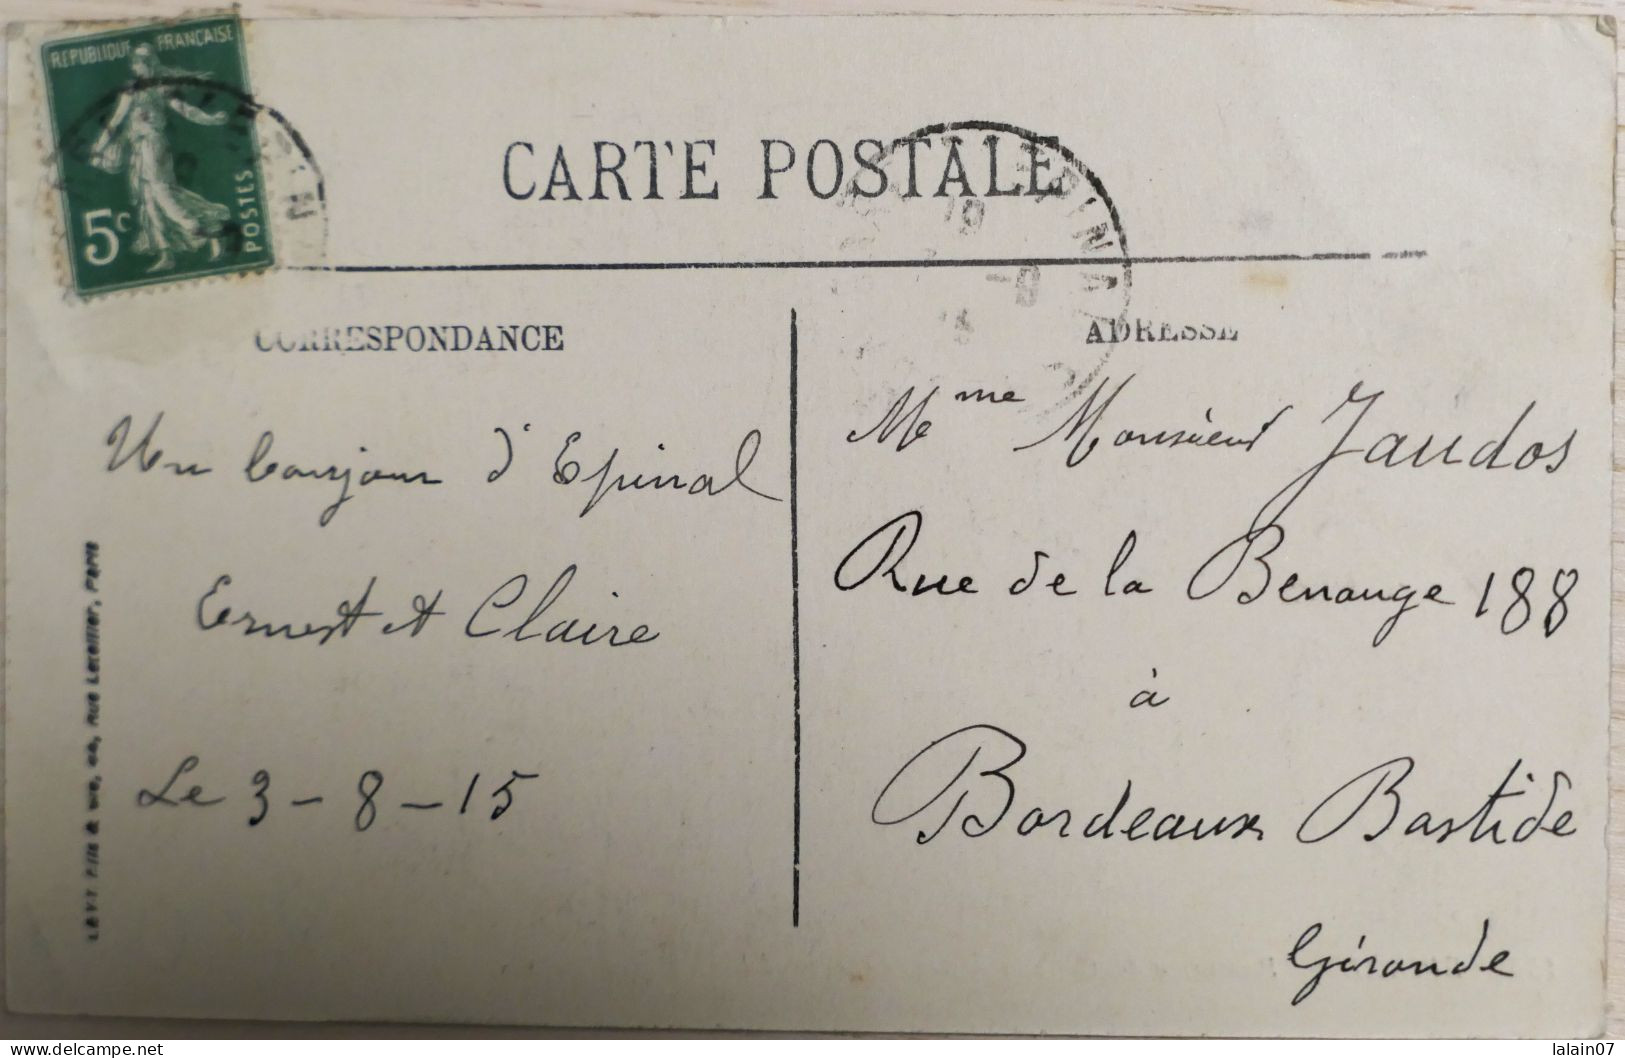 REPUBLIQUE FRANCAISE
5c
POSTES
CARTE POSTALE
CORRESPONDANCE
ADRESSE
Un bonjour d'Epinal
Ernest et Claire
Le 3-8-15
LEVY Fils & Cie, 44, Rue Letellier, PARIS
Mme Monsieur Jaudos
Rue de la Benauge 188
à
Bordeaux Bastide
Gironde
delcampe.net
lalain07